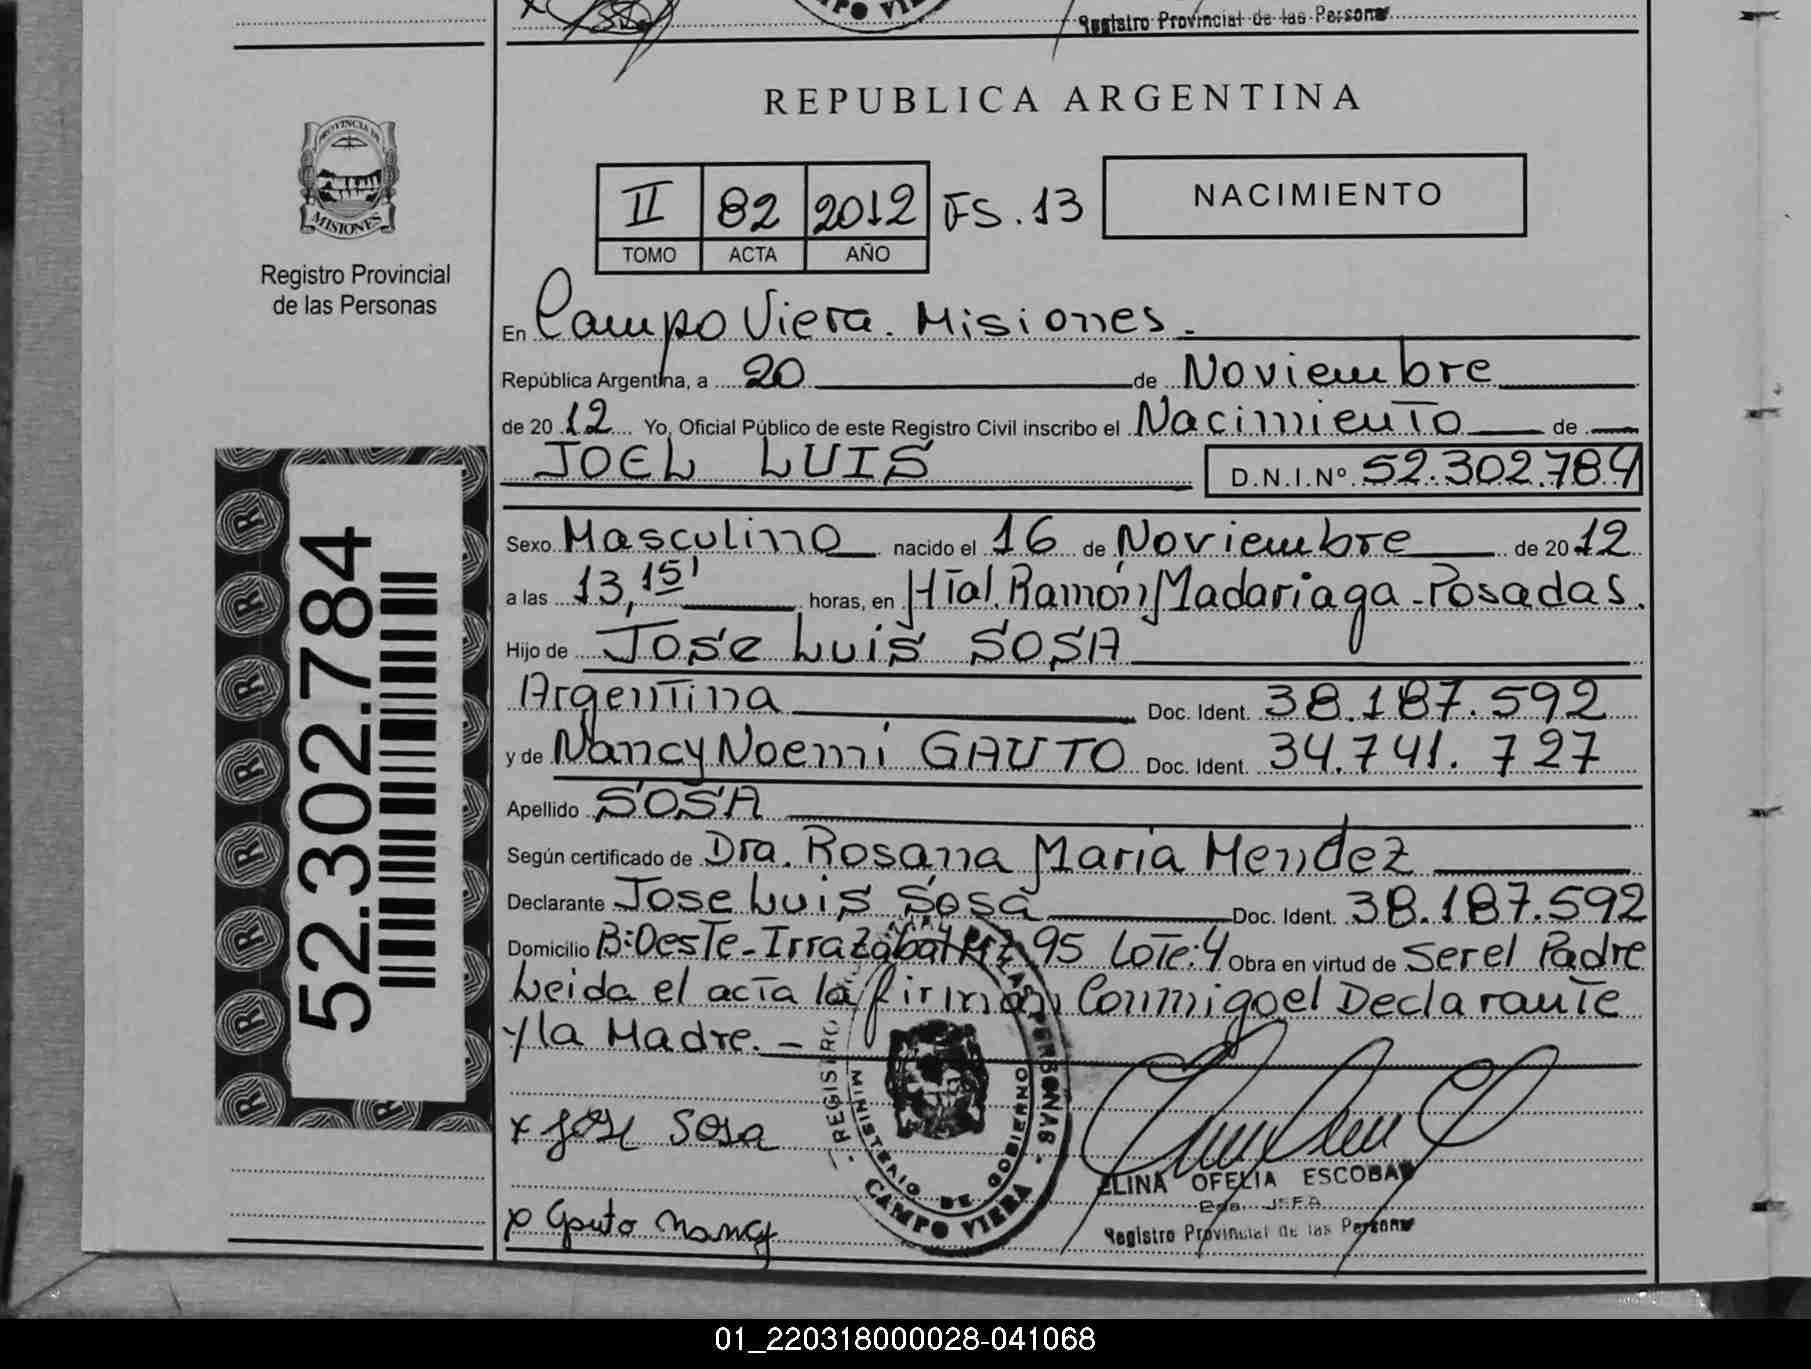 Registro Provincial de las Personas
REPUBLICA ARGENTINA
PROVINCIA DE
MISIONES
Registro Provincial
de las Personas
II 82 2012 FS. 13
TOMO ACTA AÑO
NACIMIENTO
En Campo Viera. Misiones.
República Argentina, a 20 de Noviembre
de 2012 Yo, Oficial Público de este Registro Civil inscribo el Nacimiento de
JOEL LUIS D.N.I.Nº. 52.302.784
Sexo Masculino nacido el 16 de Noviembre de 2012
a las 13,15' horas, en Htal. Ramón Madariaga - Posadas.
Hijo de Jose Luis SOSA
Argentina Doc. Ident. 38.187.592
y de Nancy Noemi GAUTO Doc. Ident. 34.741.727
Apellido SOSA
Según certificado de Dra. Rosana Maria Mendez
Declarante Jose Luis Sosa Doc. Ident. 38.187.592
Domicilio B:Oeste-Irrazabal Mz 95 Lote:4 Obra en virtud de Ser el Padre
Leida el acta la firman Conmigo el Declarante
y la Madre. -
x José Sosa
x Gauto Nancy
REGISTRO PROVINCIAL DE LAS PERSONAS
MINISTERIO DE GOBIERNO
CAMPO VIERA
ELINA OFELIA ESCOBAR
JEFA
Registro Provincial de las Personas
52.302.784
01_220318000028-041068